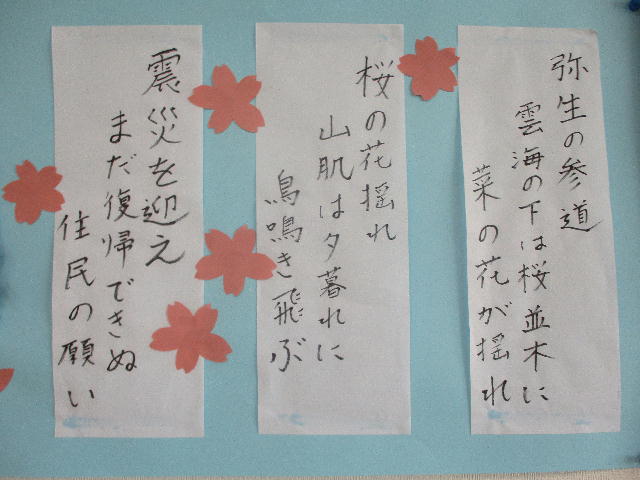 弥生の参道
雲海の下は桜並木に
菜の花が揺れ
桜の花揺れ
山肌は夕暮れに
鳥鳴き飛ぶ
震災を迎え
まだ復帰できぬ
住民の願い